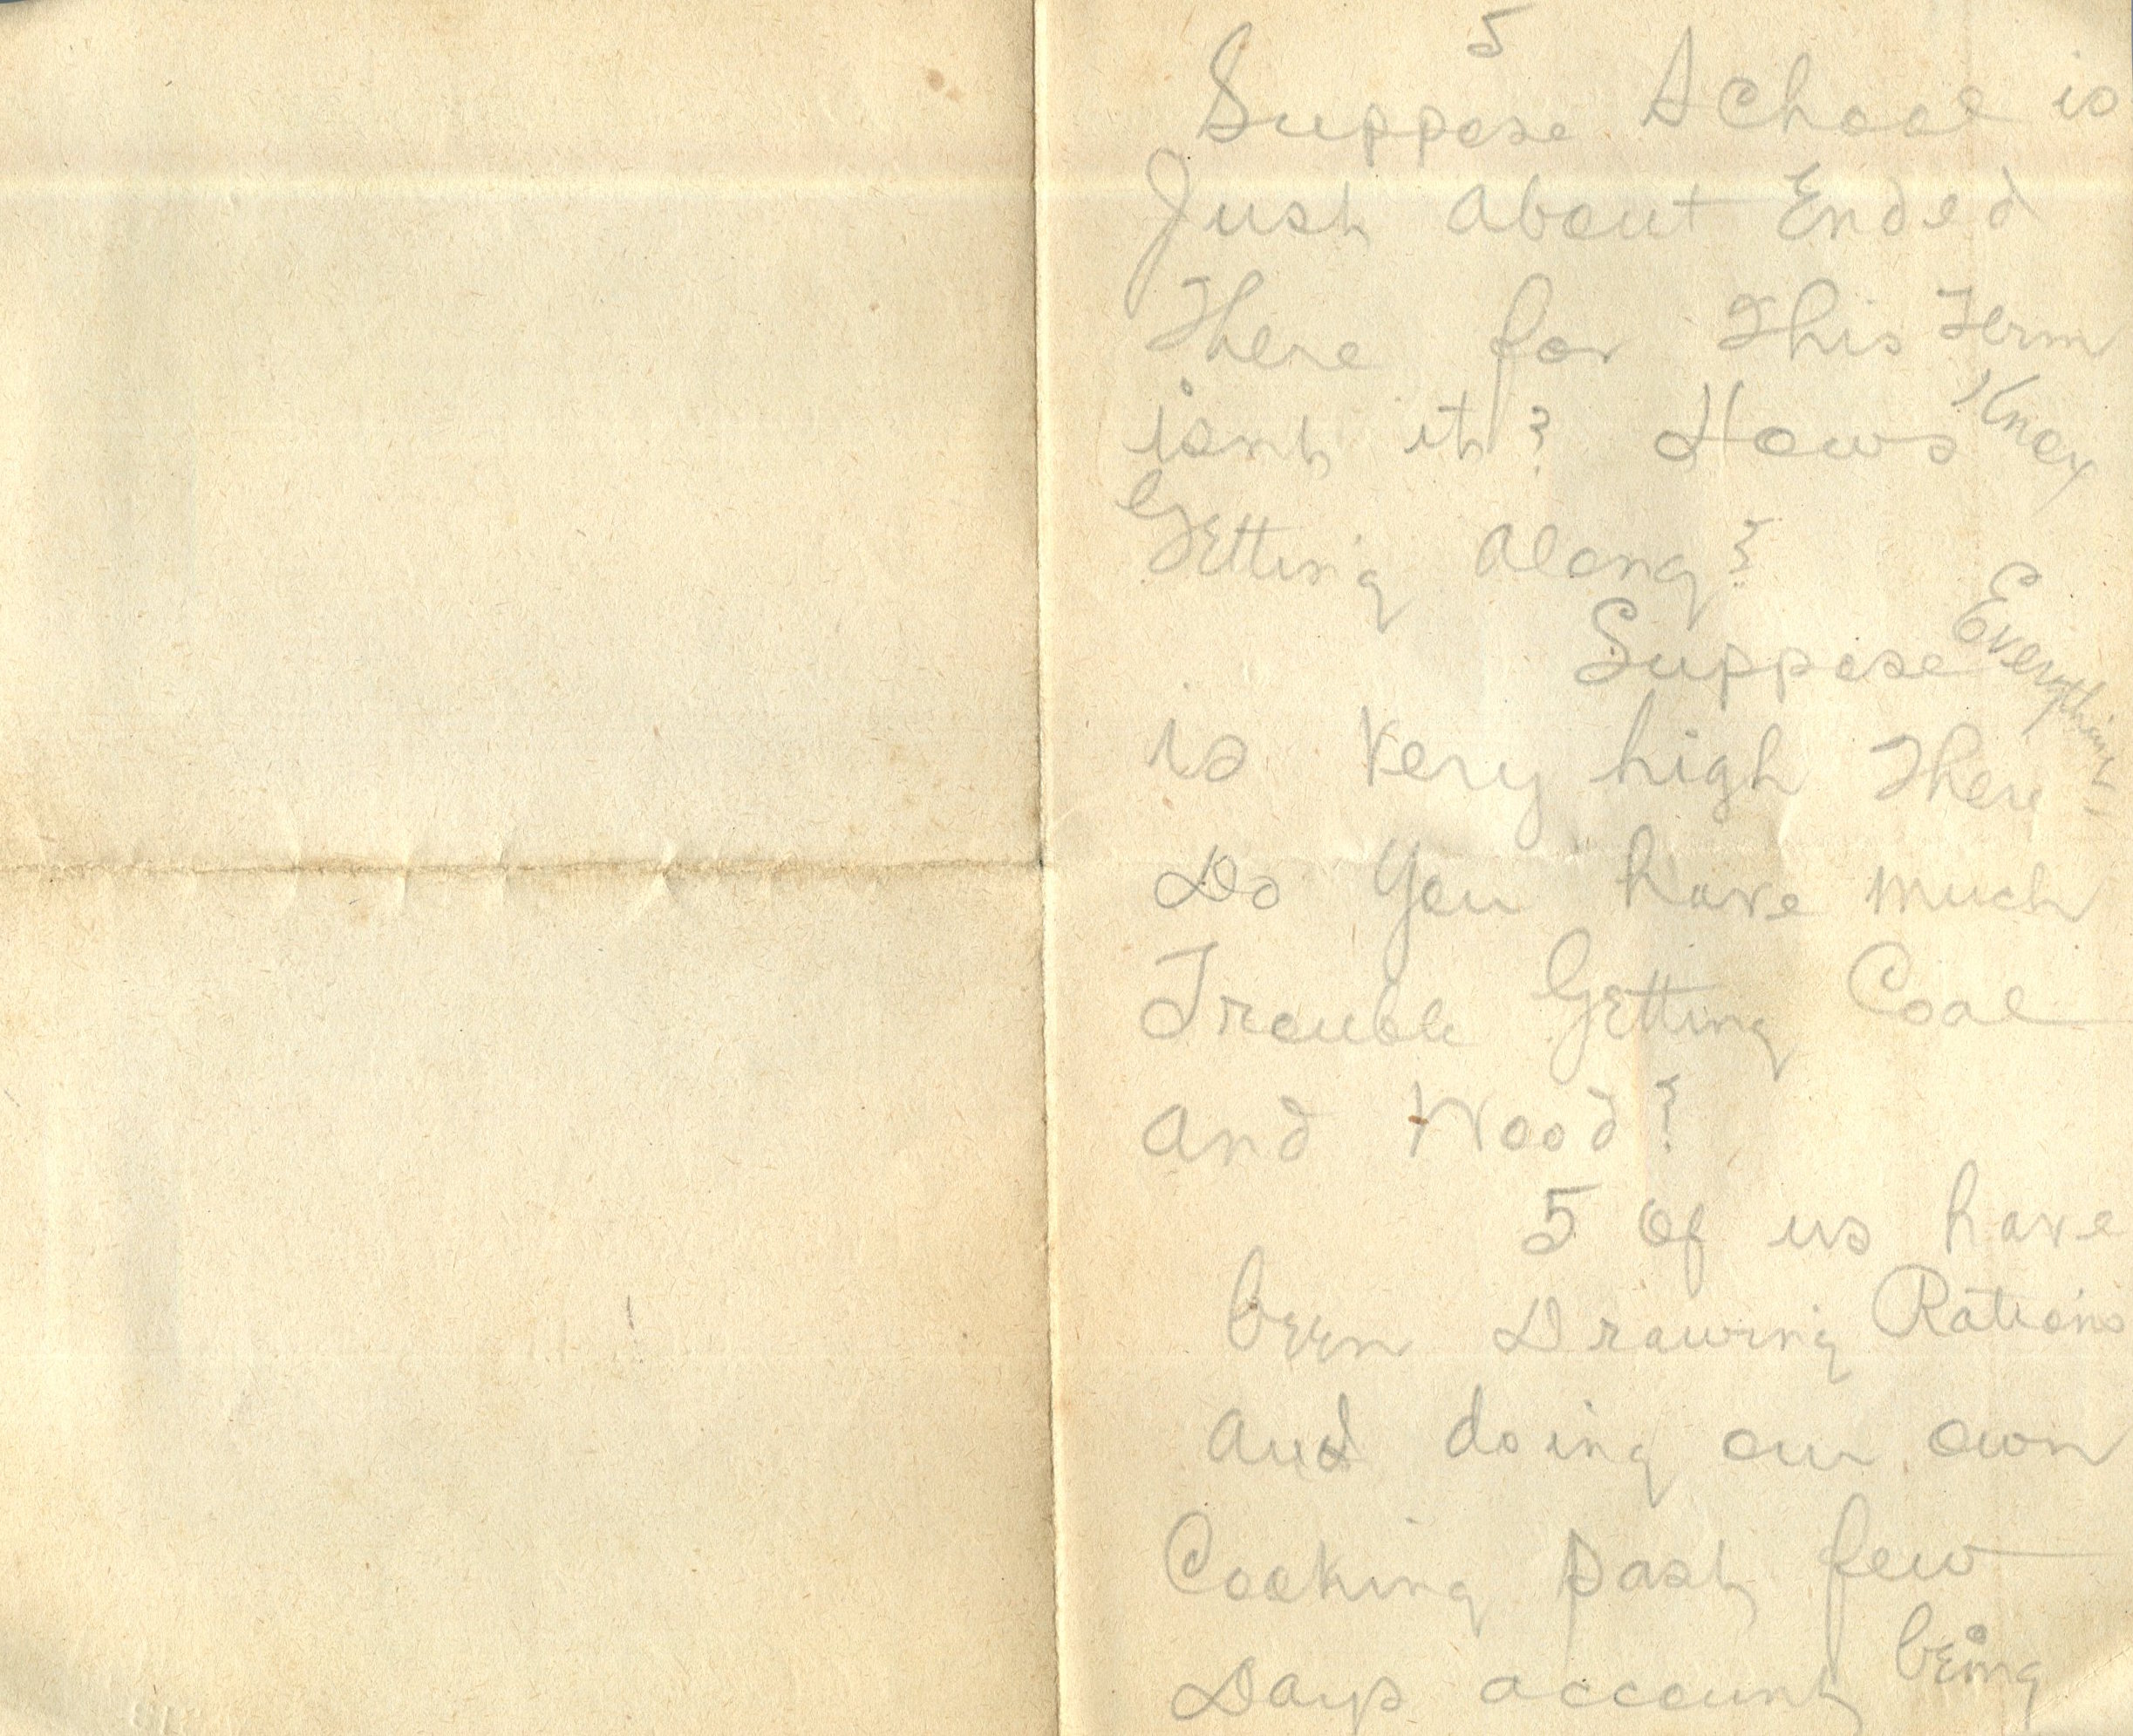 5
Suppose School is
Just About Ended
There for This Term
isnt it? Hows Knox
Getting Along?
Suppose Everything
is Very high There
Do You have much
Trouble Getting Coal
And Wood?
5 Of us have
been Drawing Rations
And doing our own
Cooking Past few
Days account being